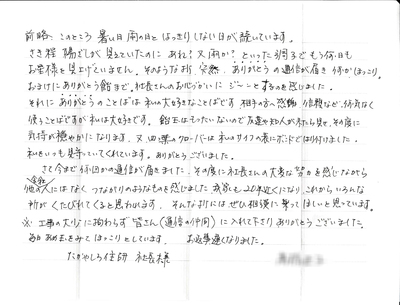 前略、このところ暑い日雨の日とはっきりしない日が続いています。
さき程 陽ざしが見えていたのに あれ？又雨か？といった調子でもう何日も
お空様を見上げていません。そのような折、突然、ありがとうの通信が届き 何かほっこり。
おまけにありがとう館まで 社長さんのお心づかいにジーンとするのを感じました。
それにありがとうのことばは私の大好きなことばです 相手の方へ感謝 信頼など、何気なく
使うことばですが私は大好きです。館はもったいないので友達や知人が来たら見せ、その度に
気持が穏やかになります。又 四葉のクローバーは私のサイフの表にボンドではり付けました。
私をいつも見守っていてくれています。ありがとうございました。
さて今まで何回かの通信が届きました。その度に社長さんの大変な努力を感じながら
他の会社にはなく つながりのようなものを感じました 我家も20年近くになり、これからいろんな
所がくたびれてくると思われます。そんな折にはぜひ相談に乗ってほしいと思っています。
※ 工事の大小に拘わらず 皆さん(通信の仲間)に入れて下さりありがとうございました。
毎日 あめ玉をみてほっこりとしています。 お返事遅くなりました。
たかやしろ住研 社長様